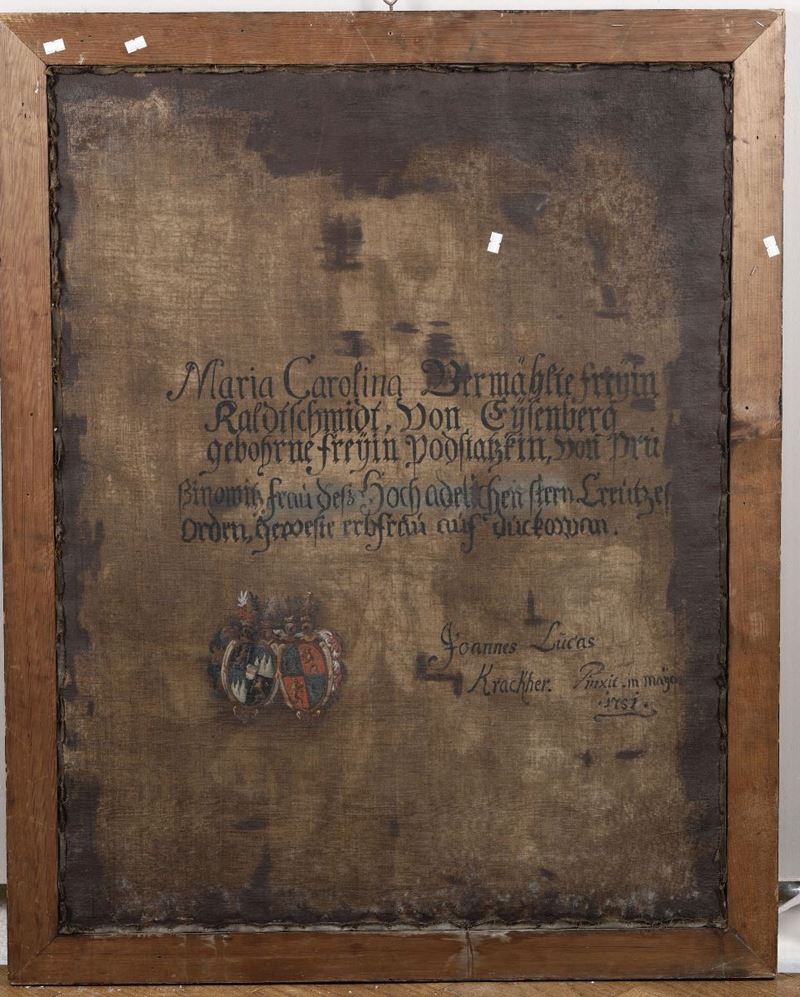 Maria Carolina Vermählte freÿin
Kaldtschmidt, Von Eÿsenberg
gebohrne freÿin Podstatzkin, von Prü
ßinowitz frau deß Hoch adelichen stern Creützes
Orden, geweste erbfraü auf dückowan.
Joannes Lücas
Krackher. Pinxit in maÿo
1751.